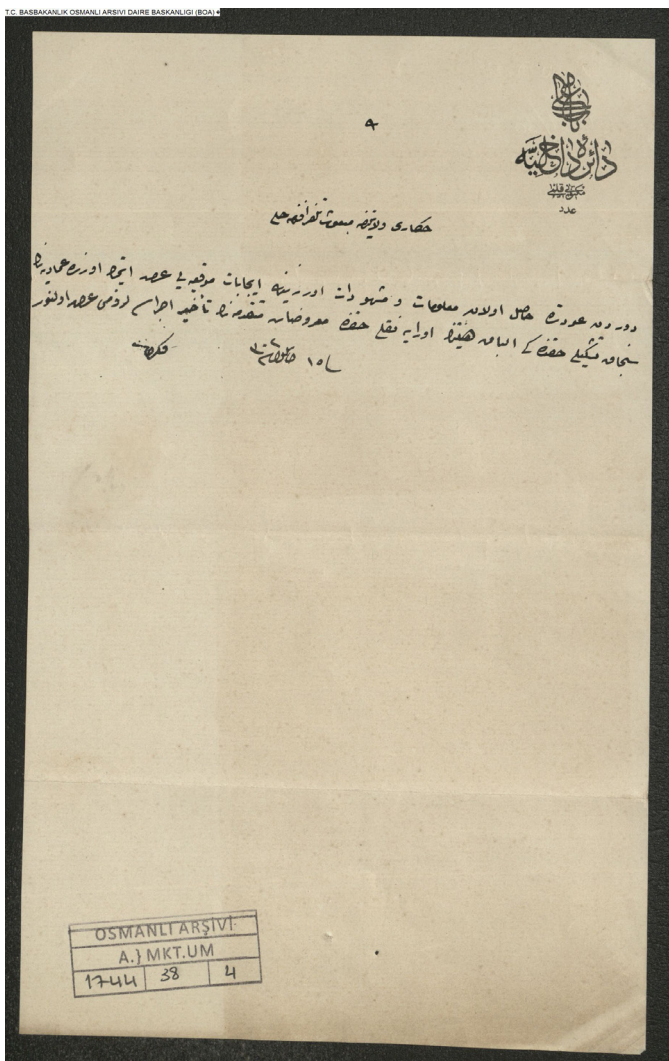 T.C. BASBAKANLIK OSMANLI ARSIVI DAIRE BASKANLIGI (BOA)
باب عالی
دائرۀ داخلیه
مکتوبی قلمی
عدد
٩
حكاری ولایتنه مبعوث تلغرافنامه حلی
دوردن عودتده حاصل اولان معلومات و مشهودات اوزرینه ایجابات موقعیه یی عرض ایتمك اوزره عمادیه نك
سنجاق تشكیلی حقنده كی الباق هیئتنك اورایه نقلی حقنده معروضات متقدمه نك تأخیر اجراسی لزومی عرض اولنور
١٥
OSMANLI ARŞİVİ
A.} MKT.UM
1744 38 4